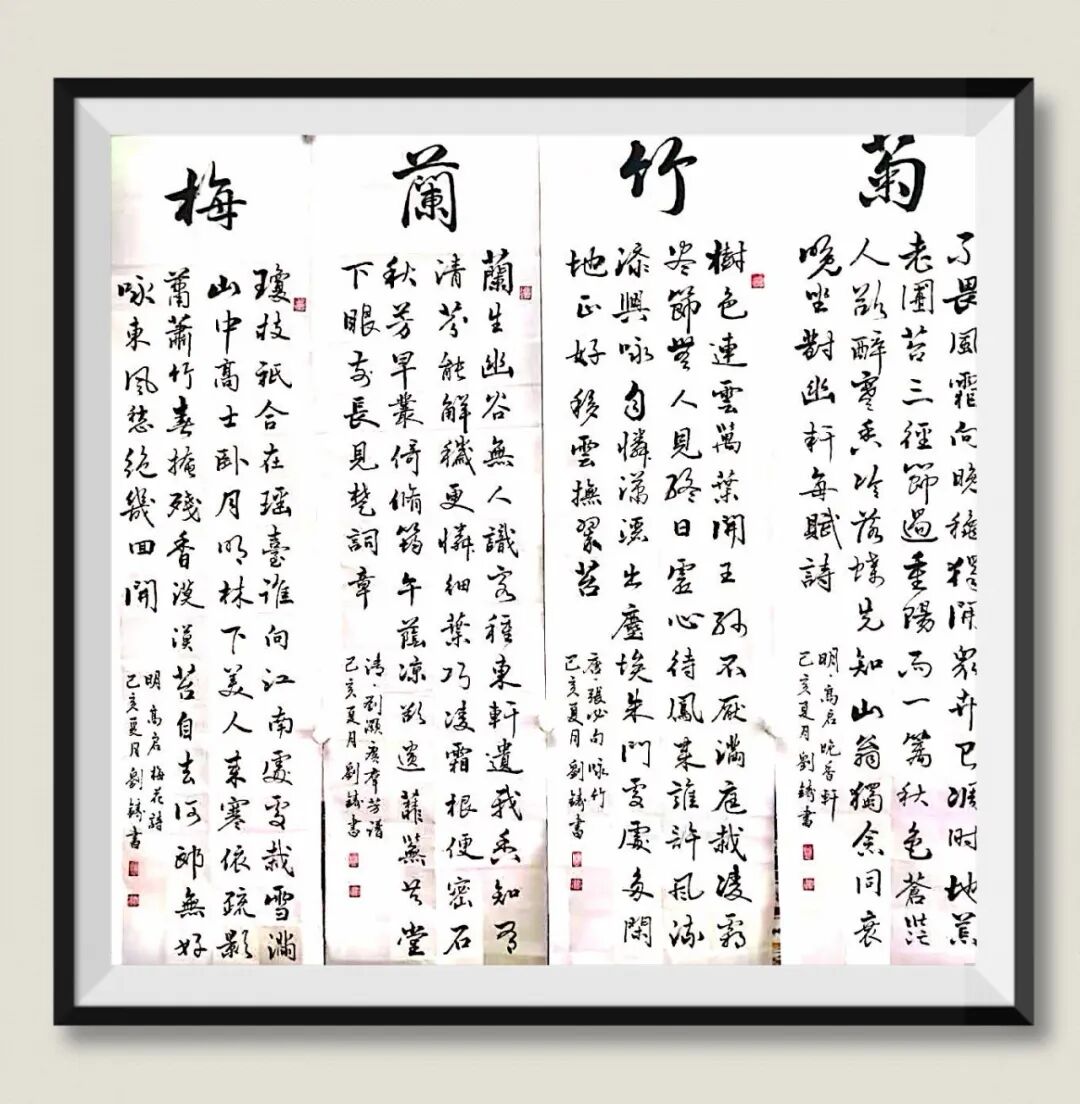 梅
瓊枝祇合在瑶臺誰向江南處處栽雪滿
山中高士卧月明林下美人来寒依疏影
蕭蕭竹春掩殘香漠漠苔自去何郎無好
咏東風愁絶幾回開
明高启梅花詩
己亥夏月劉鑄書
蘭
蘭生幽谷無人識客種東軒遺我香知有
清芬能解穢更憐細葉巧凌霜根便密石
秋芳早叢倚脩筠午蔭凉欲遺蘼蕪共堂
下眼前長見楚詞章
清劉灝廣群芳譜
己亥夏月劉鑄書
竹
樹色連雲萬葉開王孫不厭滿庭栽凌霜
尽節無人見終日虚心待鳳来誰許風流
添興咏自憐瀟洒出塵埃朱門處處多閑
地正好移雲撫翠苔
唐張必句咏竹
己亥夏月劉鑄書
菊
不畏風霜向晚獨開衆卉已凋时地荒
老圃苔三徑節過重陽雨一籬秋色蒼茫
人欲醉寒香冷落蝶先知山翁獨念同衰
晚坐對幽軒每賦詩
明高启晚香軒
己亥夏月劉鑄書